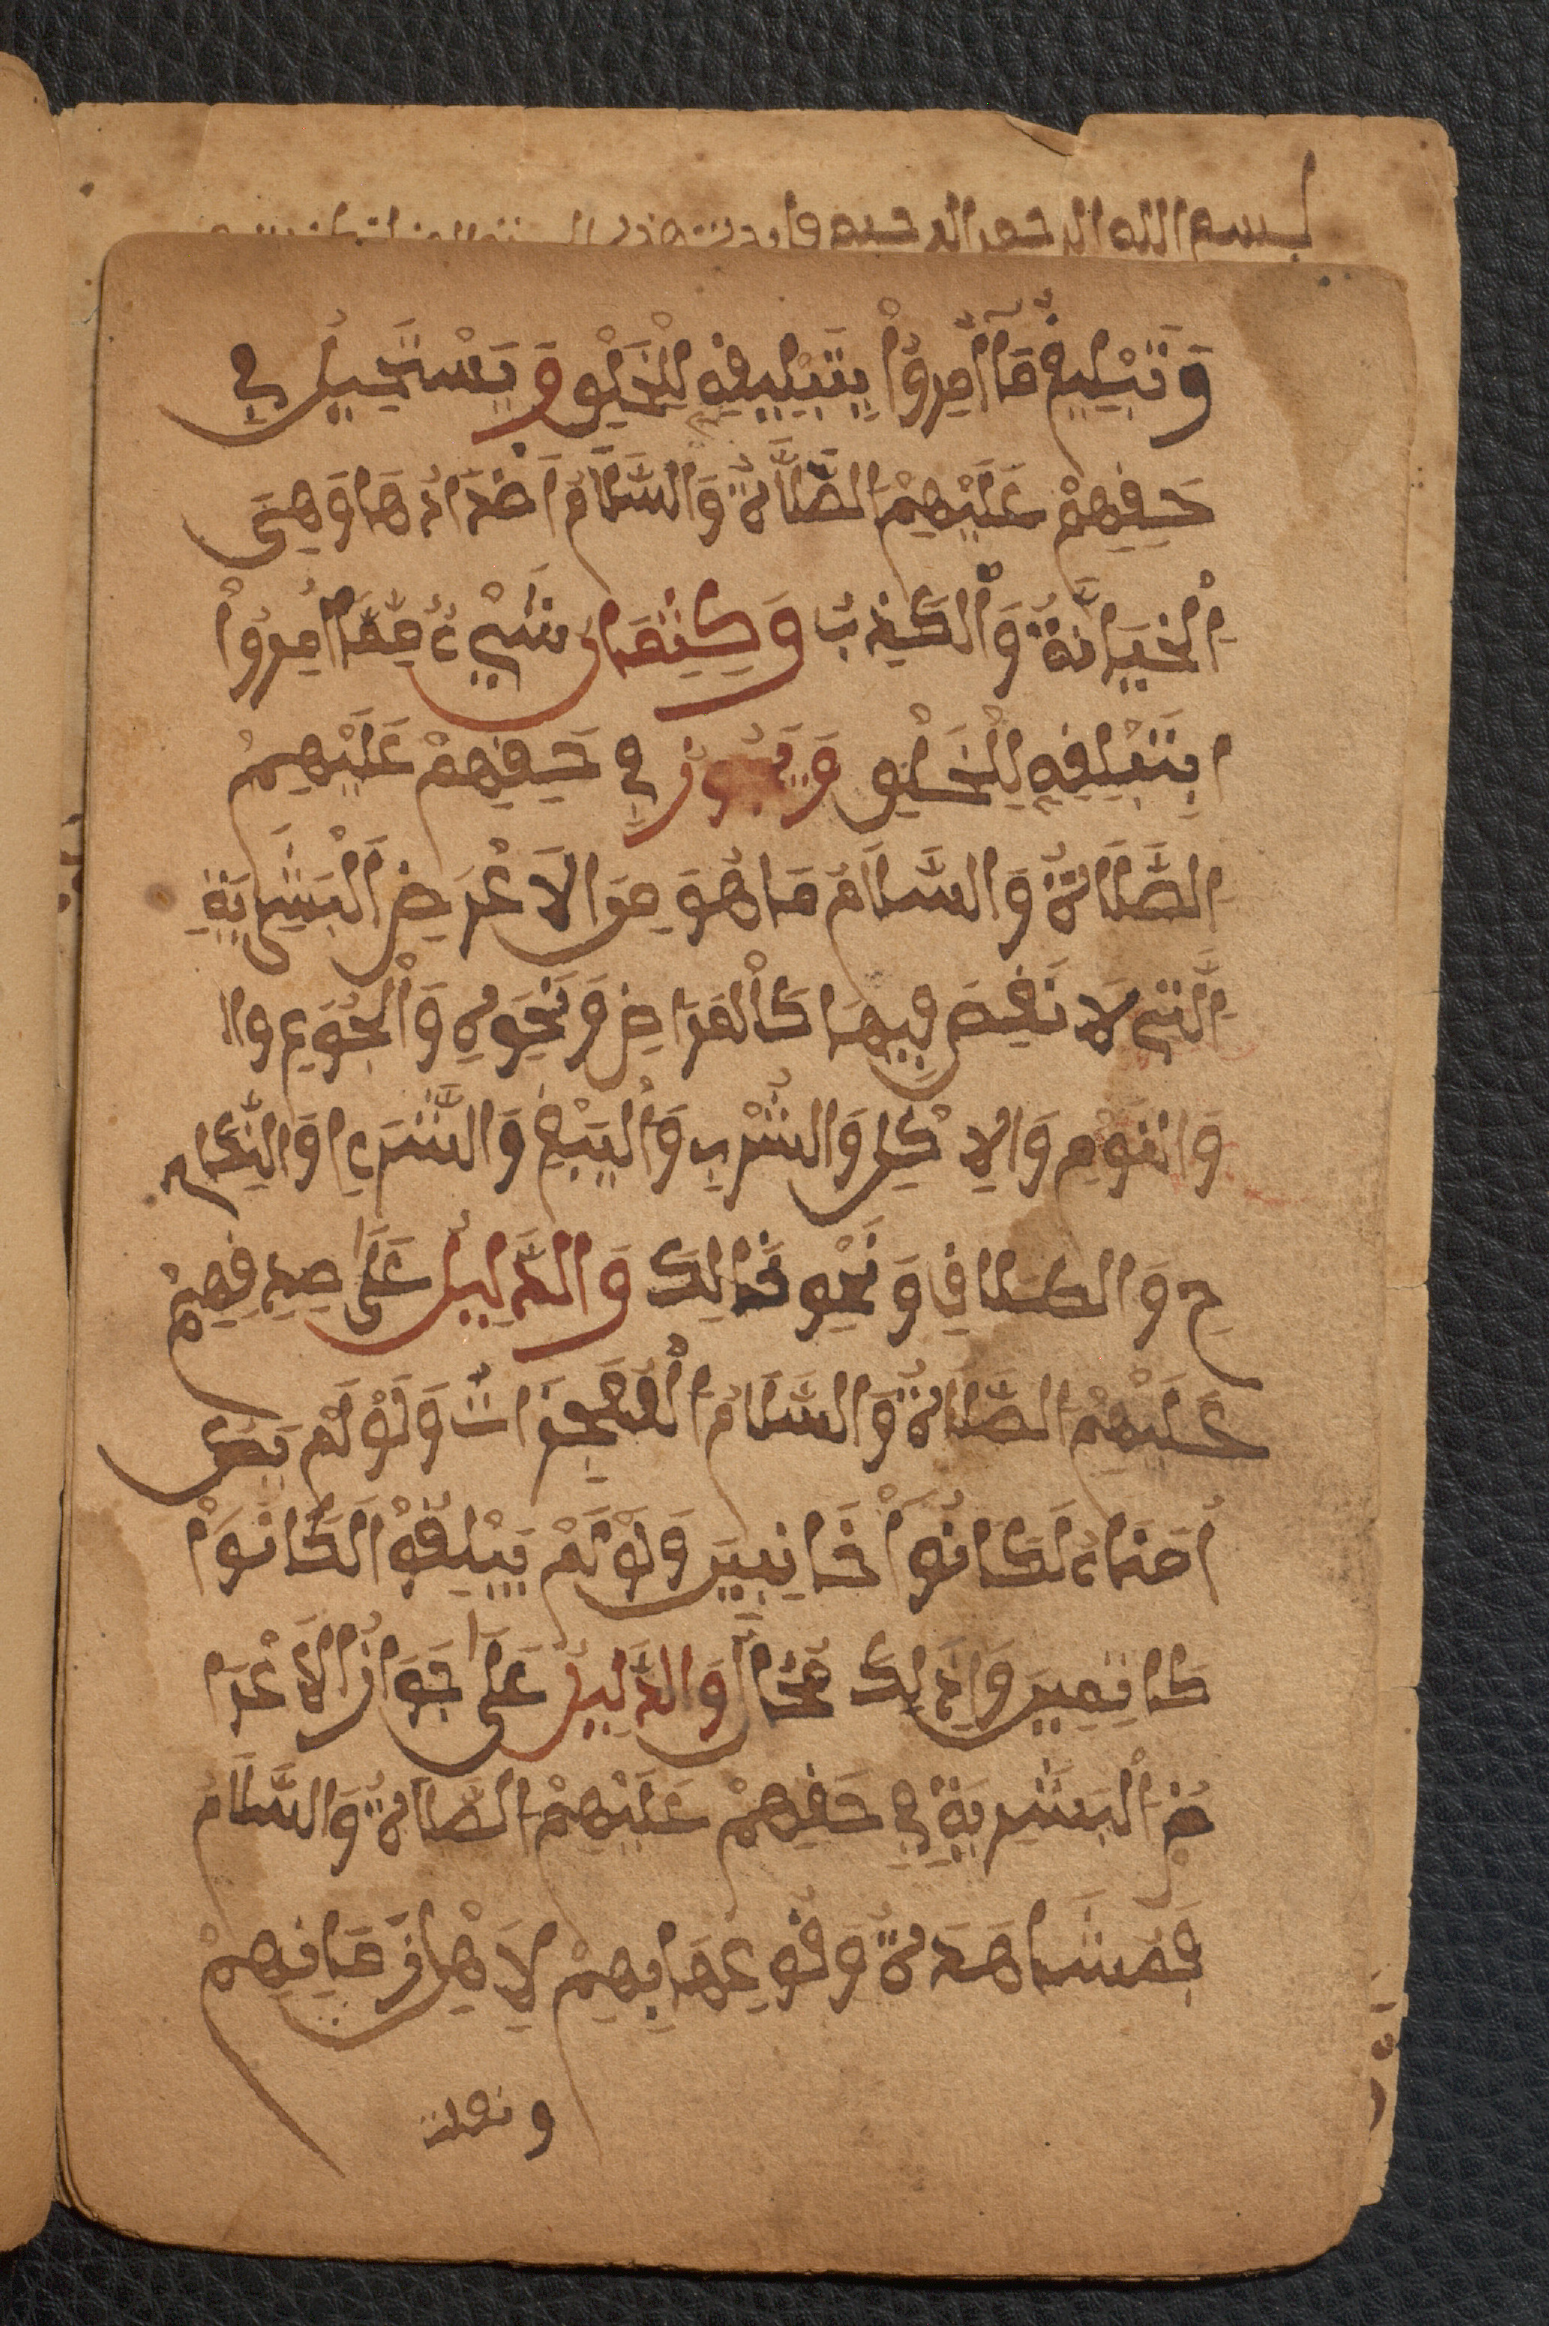 بسم الله الرحمن الرحيم
وَتَبْلِيغُ مَا أُمِرُواْ بِتَبْلِيغِهِ لِلْخَلْقِ وَيَسْتَحِيلُ فِي
حَقِّهِمْ عَلَيْهِمُ الصَّلَاةُ وَالسَّلَامُ أَضْدَادُهَا وَهِيَ
الْخِيَانَةُ وَالْكَذِبُ وَكِتْمَانُ شَيْءٍ مِمَّا أُمِرُواْ
ابِتَبْلِيغِهِ لِلْخَلْقِ وَيَجُوزُ فِي حَقِّهِمْ عَلَيْهِمُ
الصَّلَاةُ وَالسَّلَامُ مَا هُوَ مِنَ الْأَعْرَضِ الْبَشَرِيَّةِ
الَّتِي لَا نَقْصَ فِيهَا كَالْمَرَاضِ وَنَحْوِهِ وَالْجُوَعِ وا
وَالنَّوْمِ وَالْاكْلِ وَالشُّرْبِ وَالْبَيْعِ وَالشَّرَءِ وَالنِّكَا
حِ وَالطَّلَاقِ وَنَحْوِ ذَالِكَ وَالدَّلِيلُ عَلَى صِدْقِهِمْ
عَلَيْهِمُ الصَّلَاةُ وَالسَّلَامُ الْمُعْجِزَاتُ وَلَوْ لَمْ يَكُنْ
أُمَنَاءَ لَكَانُواْ خَائِنِينَ وَلَوْ لَمْ يُبَلِّغُوا لَكَانُواْ
كَاتِمِينَ وَذَلِكَ مُحَالٌ وَالدَّلِيلُ عَلَى جَوَازِ الْأَعْرَا
ضِ الْبَشَرِيَّةِ فِي حَقِّهِمْ عَلَيْهِمُ الصَّلَاةُ وَالسَّلَامُ
فَمُشَاهَدَةُ وُقُوعِهَا بِهِمْ لِأَهْلِ زَمَانِهِمْ
ونقلت